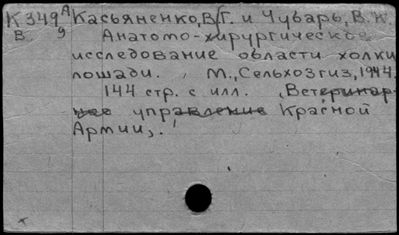 К349 А Касьяненко, В.Г. и Чубарь, В.К.
В. 9 Анатомо-хирургическое
исследование области холки
лошади. , М., Сельхозгиз, 1944.
144 стр. с илл. , Ветеринар-
ное управление Красной
Армии,.